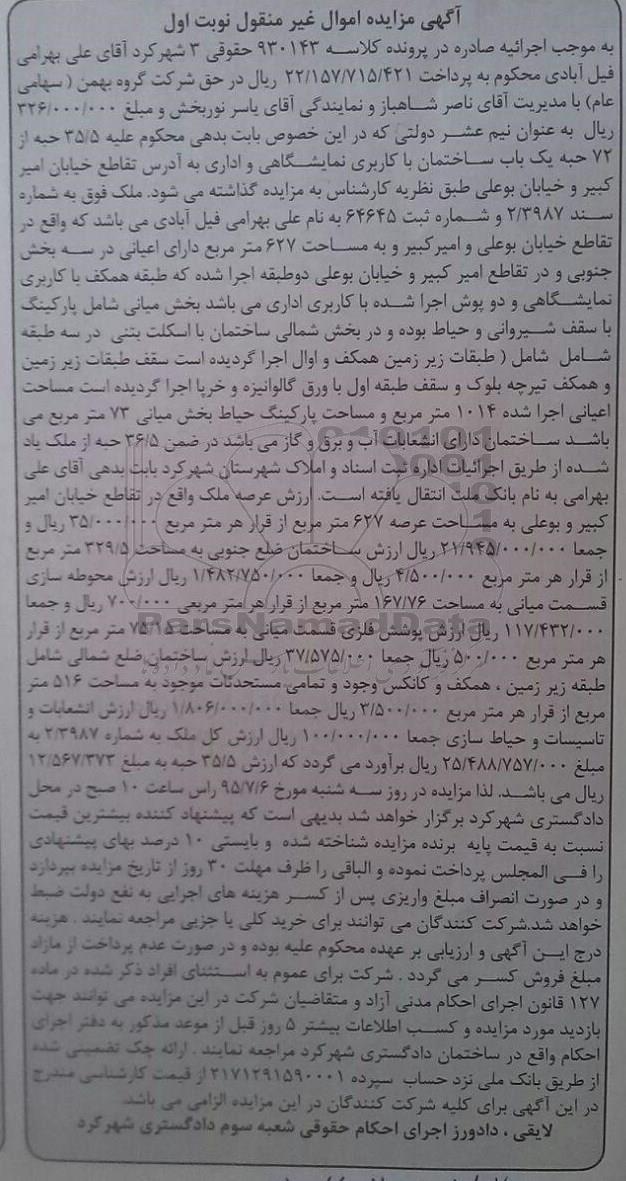 آگهی مزایده اموال غیر منقول نوبت اول
به موجب اجرائیه صادره در پرونده کلاسه ۹۳۰۱۴۳ حقوقی ۳ شهرکرد آقای علی بهرامی
فیل آبادی محکوم به پرداخت ۲۲/۱۵۷/۷۱۵/۴۲۱ ریال در حق شرکت گروه بهمن ( سهامی
عام) با مدیریت آقای ناصر شاهباز و نمایندگی آقای یاسر نوربخش و مبلغ ۳۲۶/۰۰۰/۰۰۰
ریال به عنوان نیم عشر دولتی که در این خصوص بابت بدهی محکوم علیه ۳۵/۵ حبه از
۷۲ حبه یک باب ساختمان با کاربری نمایشگاهی و اداری به آدرس تقاطع خیابان امیر
کبیر و خیابان بوعلی طبق نظریه کارشناس به مزایده گذاشته می شود. ملک فوق به شماره
سند ۲/۳۹۸۷ و شماره ثبت ۶۴۶۴۵ به نام علی بهرامی فیل آبادی می باشد که واقع در
تقاطع خیابان بوعلی و امیرکبیر و به مساحت ۶۲۷ متر مربع دارای اعیانی در سه بخش
جنوبی و در تقاطع امیر کبیر و خیابان بوعلی دوطبقه اجرا شده که طبقه همکف با کاربری
نمایشگاهی و دو پوش اجرا شده با کاربری اداری می باشد بخش میانی شامل پارکینگ
با سقف شیروانی و حیاط بوده و در بخش شمالی ساختمان با اسکلت بتنی در سه طبقه
شامل شامل ( طبقات زیر زمین همکف و اوال اجرا گردیده است سقف طبقات زیر زمین
و همکف تیرچه بلوک و سقف طبقه اول با ورق گالوانیزه و خرپا اجرا گردیده است مساحت
اعیانی اجرا شده ۱۰۱۴ متر مربع و مساحت پارکینگ حیاط بخش میانی ۷۳ متر مربع می
باشد ساختمان دارای انشعابات آب و برق و گاز می باشد در ضمن ۳۶/۵ حبه از ملک یاد
شده از طریق اجرائیات اداره ثبت اسناد و املاک شهرستان شهرکرد بابت بدهی آقای علی
بهرامی به نام بانک ملت انتقال یافته است. ارزش عرصه ملک واقع در تقاطع خیابان امیر
کبیر و بوعلی به مساحت عرصه ۶۲۷ متر مربع از قرار هر متر مربع ۳۵/۰۰۰/۰۰۰ ریال و
جمعا ۲۱/۹۴۵/۰۰۰/۰۰۰ ریال ارزش ساختمان ضلع جنوبی به مساحت ۳۲۹/۵ متر مربع
از قرار هر متر مربع ۴/۵۰۰/۰۰۰ ریال و جمعا ۱/۴۸۲/۷۵۰/۰۰۰ ریال ارزش محوطه سازی
قسمت میانی به مساحت ۱۶۷/۷۶ متر مربع از قرار هر متر مربعی ۷۰۰/۰۰۰ ریال و جمعا
۱۱۷/۴۳۲/۰۰۰ ریال ارزش پوشش فلزی قسمت میانی به مساحت ۷۵/۱۵ متر مربع از قرار
هر متر مربع ۵۰۰/۰۰۰ ریال جمعا ۳۷/۵۷۵/۰۰۰ ریال ارزش ساختمان ضلع شمالی شامل
طبقه زیر زمین ، همکف و کانکس وجود و تمامی مستحدثات موجود به مساحت ۵۱۶ متر
مربع از قرار هر متر مربع ۳/۵۰۰/۰۰۰ ریال جمعا ۱/۸۰۶/۰۰۰/۰۰۰ ریال ارزش انشعابات و
تاسیسات و حیاط سازی جمعا ۱۰۰/۰۰۰/۰۰۰ ریال ارزش کل ملک به شماره ۲/۳۹۸۷ به
مبلغ ۲۵/۴۸۸/۷۵۷/۰۰۰ ریال برآورد می گردد که ارزش ۳۵/۵ حبه به مبلغ ۱۲/۵۶۷/۳۷۳
ریال می باشد. لذا مزایده در روز سه شنبه مورخ ۹۵/۷/۶ راس ساعت ۱۰ صبح در محل
دادگستری شهرکرد برگزار خواهد شد بدیهی است که پیشنهاد کننده بیشترین قیمت
نسبت به قیمت پایه برنده مزایده شناخته شده و بایستی ۱۰ درصد بهای پیشنهادی
را فی المجلس پرداخت نموده و الباقی را ظرف مهلت ۳۰ روز از تاریخ مزایده بپردازد
و در صورت انصراف مبلغ واریزی پس از کسر هزینه های اجرایی به نفع دولت ضبط
خواهد شد.شرکت کنندگان می توانند برای خرید کلی یا جزیی مراجعه نمایند . هزینه
درج این آگهی و ارزیابی بر عهده محکوم علیه بوده و در صورت عدم پرداخت از مازاد
مبلغ فروش کسر می گردد . شرکت برای عموم به استثنای افراد ذکر شده در ماده
۱۲۷ قانون اجرای احکام مدنی آزاد و متقاضیان شرکت در این مزایده می توانند جهت
بازدید مورد مزایده و کسب اطلاعات بیشتر ۵ روز قبل از موعد مذکور به دفتر اجرای
احکام واقع در ساختمان دادگستری شهرکرد مراجعه نمایند . ارائه چک تضمینی شده
از طریق بانک ملی نزد حساب سپرده ۲۱۷۱۲۹۱۵۹۰۰۰۱ از قیمت کارشناسی مندرج
در این آگهی برای کلیه شرکت کنندگان در این مزایده الزامی می باشد.
لایقی ، دادورز اجرای احکام حقوقی شعبه سوم دادگستری شهرکرد
ParsNamadData